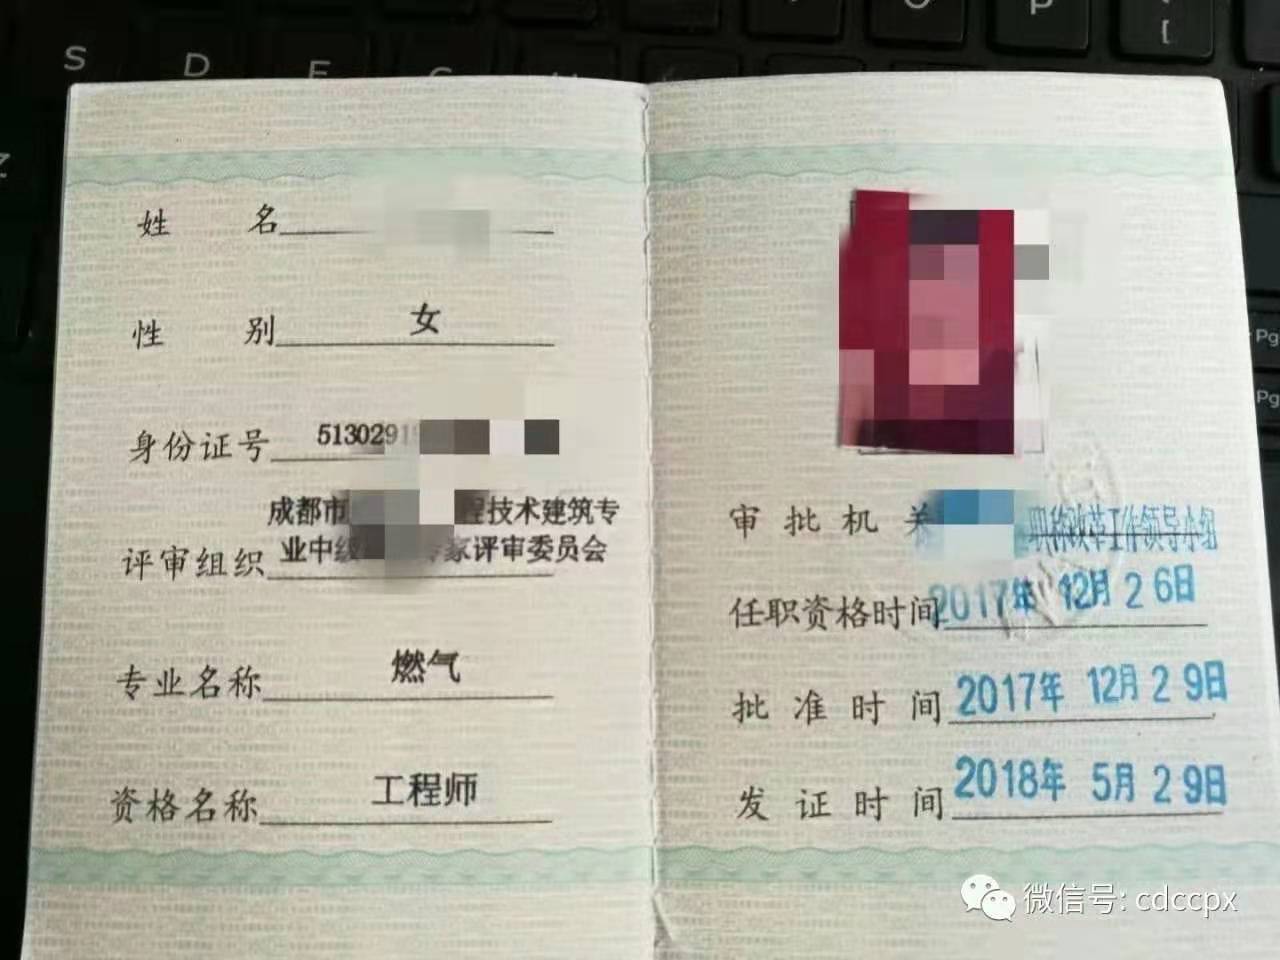 S D E
姓名
性别 女
身份证号 5130291
评审组织 成都市 程技术建筑专
业中级 专家评审委员会
专业名称 燃气
资格名称 工程师
审批机关 职称改革工作领导小组
任职资格时间 2017年 12月 26日
批准时间 2017年 12月 29日
发证时间 2018年 5月 29日
微信号: cdccpx